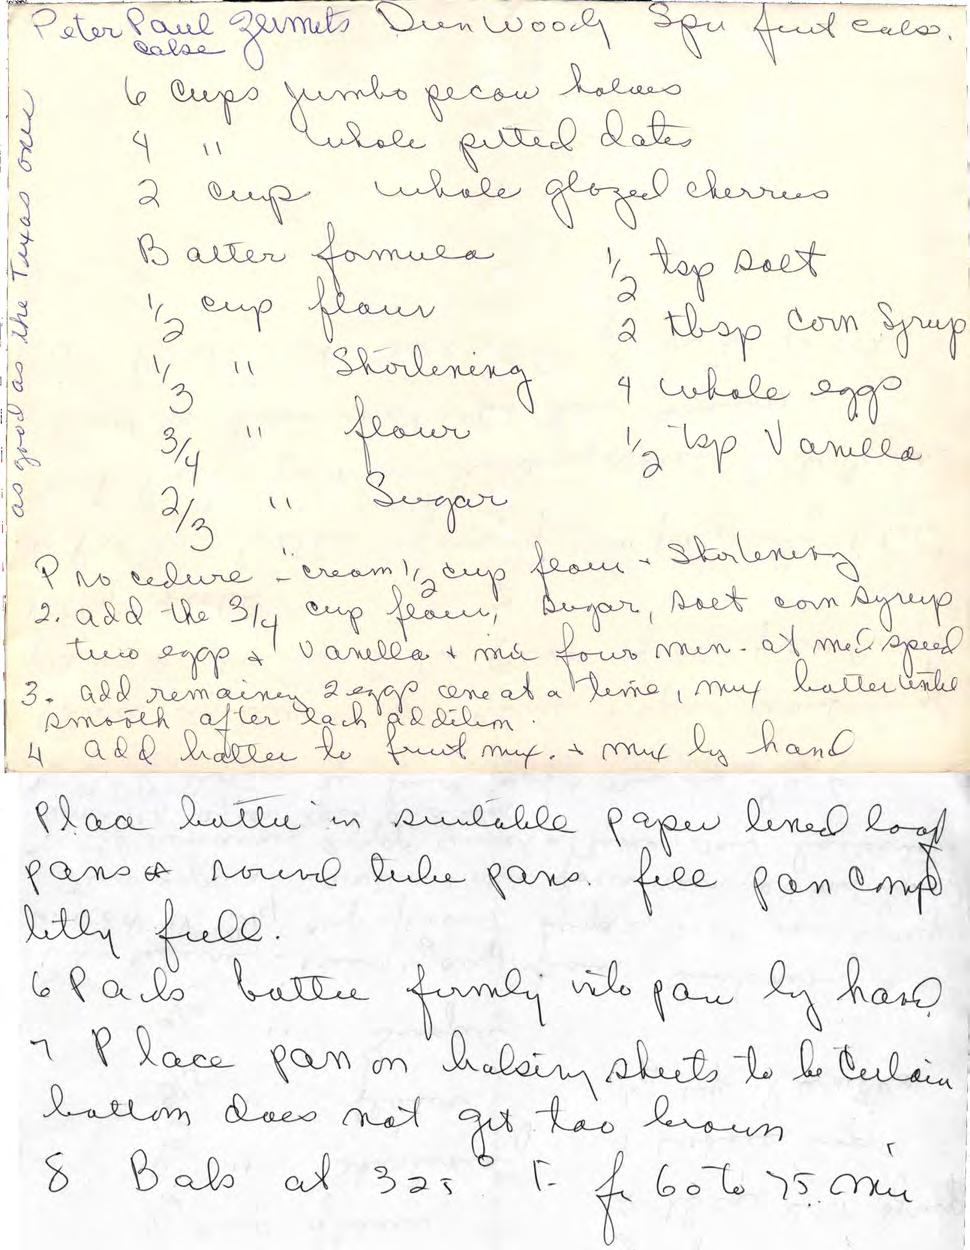 Peter Paul Dunwoody fruit cake.
cake
as good as the Texas one
6 cups jumbo pecan halves
4 " whole pitted dates
2 cup whole glazed cherries
Batter formula
1/2 cup flour
1/3 " Shortening
3/4 " flour
2/3 " Sugar
1/2 tsp salt
2 tbsp Corn Syrup
4 whole eggs
1/2 tsp Vanilla
Procedure - cream 1/2 cup flour + Shortening
2. add the 3/4 cup flour, sugar, salt corn syrup
two eggs + Vanilla + mix four min. at med speed
3. add remaining 2 eggs one at a time, mix batter until
smooth after each addition.
4 add batter to fruit mix. + mix by hand
Place batter in suitable paper lined loaf
pans or round tube pans. fill pan comp
letly full.
6 Pack batter firmly into pan by hand.
7 Place pan on baking sheets to be certain
bottom does not get too brown
8 Bake at 325° F. for 60 to 75 min